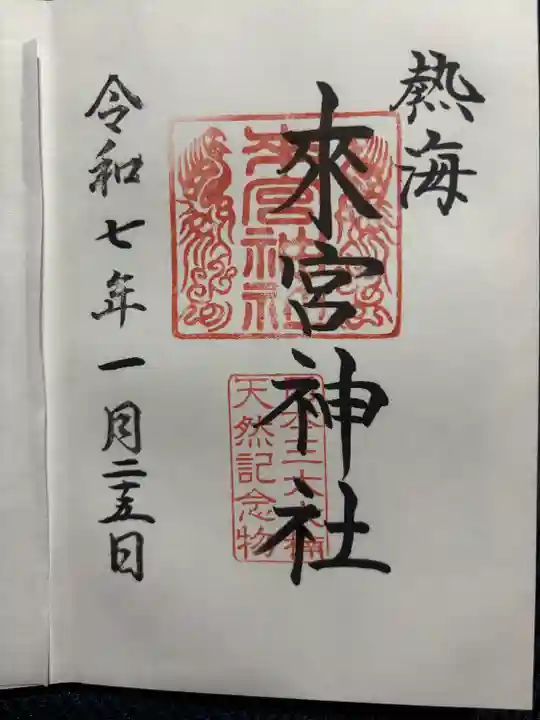 熱海
來宮神社
來宮神社
日本三大大楠
天然記念物
令和七年一月二五日